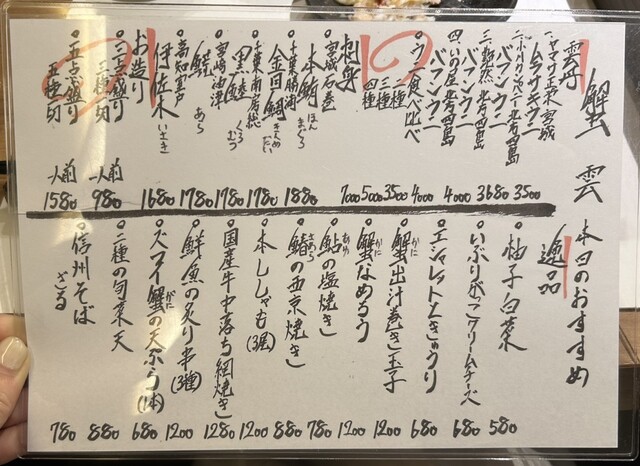 蟹雲 本日のおすすめ
雲丹
ムラサキウニ 3500
バフンウニ 3680
バフンウニ 4000
バフンウニ 4000
ウニ食べ比べ
二種 3500
三種 5000
四種 7000
刺身
宮城石巻
本鮪 ほんまぐろ 1880
千葉勝浦
金目鯛 きんめだい 1780
千葉南房総
黒鯥 くろむつ 1780
宮崎油津
𩺊 あら 1780
高知室戸
伊佐木 いさき 1680
お造り
三点盛り
三種一切 一人前 980
五点盛り
五種一切 一人前 1580
逸品
柚子白菜 580
いぶりがっこクリームチーズ 680
エシャレットときゅうり 680
蟹出汁巻き玉子 1200
蟹なめろう 1200
鮎の塩焼き 780
鰆の西京焼き 880
本ししゃも(3尾) 1200
国産牛中落ち網焼き 1280
鮮魚の炙り串(3種) 1200
ズワイ蟹の天ぷら(1本) 680
三種の旬菜天 880
信州そば
ざる 780